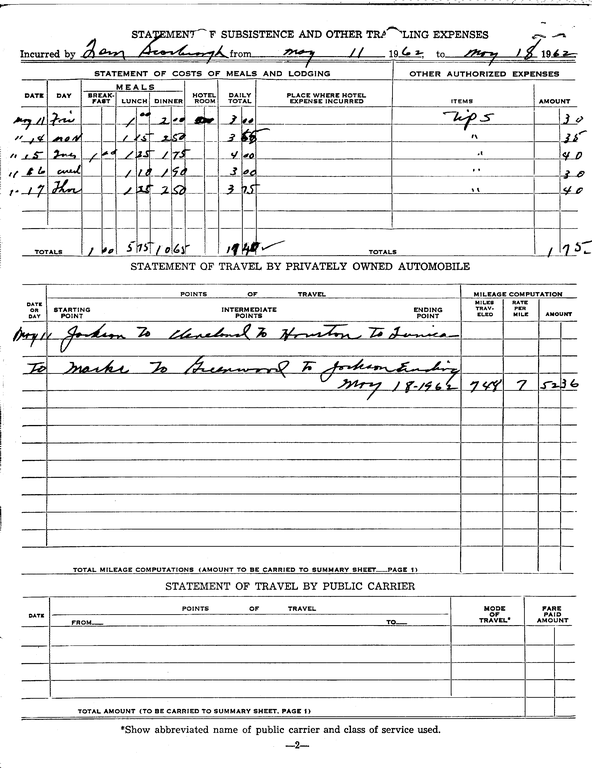 STATEMENT OF SUBSISTENCE AND OTHER TRAVELING EXPENSES
Incurred by Scarbrough from May 11 1962, to May 18 1962
STATEMENT OF COSTS OF MEALS AND LODGING OTHER AUTHORIZED EXPENSES
MEALS
DATE DAY BREAK-FAST LUNCH DINNER HOTEL ROOM DAILY TOTAL PLACE WHERE HOTEL EXPENSE INCURRED ITEMS AMOUNT
May 11 Fri 1 00 2 00 3 00 Tips 30
" 14 Mon 1 15 2 50 3 " 35
" 15 Tues 1 00 1 25 1 75 4 00 " 40
" 16 Wed 1 10 1 90 3 00 " 30
" 17 Thur 1 25 2 50 3 75 " 40
TOTALS 1 00 5 75 10 65 17 40 ✓ TOTALS 1 75
STATEMENT OF TRAVEL BY PRIVATELY OWNED AUTOMOBILE
POINTS OF TRAVEL MILEAGE COMPUTATION
DATE OR DAY STARTING POINT INTERMEDIATE POINTS ENDING POINT MILES TRAV-ELED RATE PER MILE AMOUNT
May 11 Jackson To Cleveland To Houston To Tunica
To Marks To Greenwood To Jackson Ending
May 18-1962 748 7 52 36
TOTAL MILEAGE COMPUTATIONS (AMOUNT TO BE CARRIED TO SUMMARY SHEET PAGE 1)
STATEMENT OF TRAVEL BY PUBLIC CARRIER
DATE POINTS OF TRAVEL MODE OF TRAVEL* FARE PAID AMOUNT
FROM TO
TOTAL AMOUNT (TO BE CARRIED TO SUMMARY SHEET, PAGE 1)
*Show abbreviated name of public carrier and class of service used.
—2—